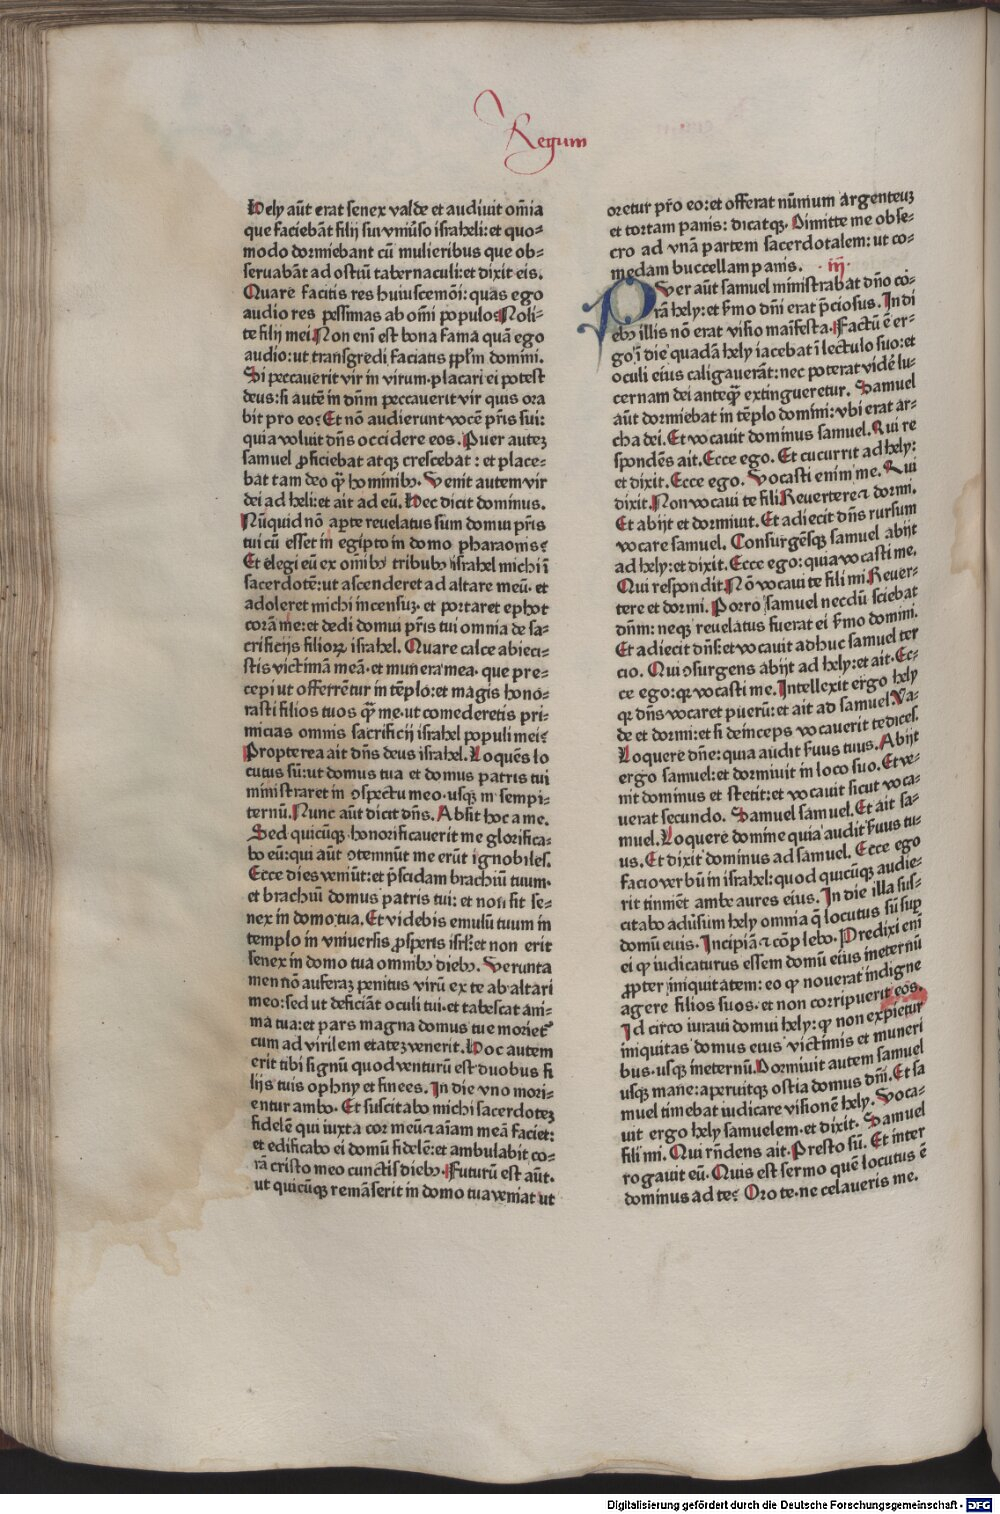 Regum
Hely aūt erat senex valde et audiuit om̄ia
que faciebāt filij sui vniũso israheli: et quo=
modo dormiebant cū mulieribus que ob=
seruabāt ad ostiū tabernaculi: et dixit eis.
Quare facitis res huiuscemōi: quas ego
audio res pessimas ab om̄i populo? Noli=
te filij mei. Non enī est bona fama quā ego
audio: ut transgredi faciatis pp̄lm domini.
Si peccauerit vir in virum. placari ei potest
deus: si autē in dn̄m peccauerit vir quis ora
bit pro eo? Et nō audierunt vocē pr̄is sui:
quia voluit dn̄s occidere eos. Puer autez
samuel ꝓficiebat atqꝫ crescebat: et place=
bat tam deo qꝫ̄ hominibꝰ. Venit autem vir
dei ad heli: et ait ad eū. Hec dicit dominus.
Nūquid nō aꝑte reuelatus sum domui pr̄is
tui cū esset in egipto in domo pharaonis?
Et elegi eū ex om̄ibꝰ tribubꝰ israhel michi ī
sacerdotē: ut ascenderet ad altare meū. et
adoleret michi incensuz. et portaret ephot
corā me: et dedi domui pr̄is tui omnia de sa=
crificijs filioꝝ israhel. Quare calce abieci=
stis victimā meā. et munera mea. que pre=
cepi ut offerrētur in tēplo: et magis hono=
rasti filios tuos qꝫ̄ me. ut comederetis pri=
micias omnis sacrificij israhel populi mei?
Propterea ait dn̄s deus israhel. Loquēs lo
cutus sū: ut domus tua et domus patris tui
ministraret in ꝯspectu meo. usqꝫ in sempi=
ternū. Nunc aūt dicit dn̄s. Absit hoc a me.
Sed quicūqꝫ honorificauerit me glorifica=
bo eū: qui aūt ꝯtemnūt me erūt ignobiles.
Ecce dies veniūt: et p̄scidam brachiū tuum.
et brachiū domus patris tui: et non sit se=
nex in domo tua. Et videbis emulū tuum in
templo in vniuersis ꝓsperis isrl̄: et non erit
senex in domo tua omnibꝰ diebꝰ. Verunta
men nō auferaz penitus virū ex te ab altari
meo: sed ut deficiāt oculi tui. et tabescat ani=
ma tua: et pars magna domus tue morieť
cum ad virilem etatez venerit. Hoc autem
erit tibi signū quod venturū est duobus fi
lijs tuis ophny et finees. In die vno mori=
entur ambo. Et suscitabo michi sacerdotez
fidelē qui iuxta cor meū ⁊ aīam meā faciet:
et edificabo ei domū fidelē: et ambulabit co=
rā cristo meo cunctis diebꝰ. Futurū est aūt.
ut quicūqꝫ remāserit in domo tua veniat ut
oretur pro eo: et offerat nūmum argenteuz
et tortam panis: dicatqꝫ. Dimitte me obse=
cro ad vnā partem sacerdotalem: ut co=
medam buccellam panis. .iij.
Puer aūt samuel ministrabat dn̄o co=
rā hely: et s̄mo dn̄i erat p̄ciosus. In di
ebꝰ illis nō erat visio maīfesta. Factū ē er=
go ī die quadā hely iacebat ī lectulo suo: et
oculi eius caligauerāt: nec poterat vidē lu=
cernam dei anteqꝫ̄ extingueretur. Samuel
aūt dormiebat in tēplo domini: vbi erat ar=
cha dei. Et vocauit dominus samuel. Qui re
spondēs ait. Ecce ego. Et cucurrit ad hely:
et dixit. Ecce ego. Vocasti enim me. Qui
dixit. Non vocaui te fili. Reuertere ⁊ dormi.
Et abijt et dormiuit. Et adiecit dn̄s rursum
vocare samuel. Consurgēsqꝫ samuel abijt
ad hely: et dixit. Ecce ego: quia vocasti me.
Qui respondit. Nō vocaui te fili mi. Reuer=
tere et dormi. Porro samuel necdū sciebat
dn̄m: neqꝫ reuelatus fuerat ei s̄mo domini.
Et adiecit dn̄s: et vocauit adhuc samuel ter
cio. Qui ꝯsurgens abijt ad hely: et ait. Ec=
ce ego: qꝛ vocasti me. Intellexit ergo hely
qꝛ dn̄s vocaret puerū: et ait ad samuel. Va=
de et dormi: et si deinceps vocauerit te dices.
Loquere dn̄e: quia audit s̄uus tuus. Abijt
ergo samuel: et dormiuit in loco suo. Et ve=
nit dominus et stetit: et vocauit sicut voca=
uerat secundo. Samuel samuel. Et ait sa=
muel. Loquere domine quia audit s̄uus tu=
us. Et dixit dominus ad samuel. Ecce ego
facio verbū in israhel: quod quicūqꝫ audie=
rit tinniēt ambe aures eius. In die illa sus=
citabo adũsum hely omnia q̄ locutus sū suꝑ
domū euis. Incipiā ⁊ cōplebo. Predixi enī
ei ꝙ iudicaturus essem domū eius ineternū
ꝓpter iniquitatem: eo ꝙ nouerat indigne
agere filios suos. et non corripuerit eos.
Idcirco iuraui domui hely: ꝙ non expietur
iniquitas domus eius victimis et muneri
bus. usqꝫ ineternū. Dormiuit autem samuel
usqꝫ mane: aperuitqꝫ ostia domus dn̄i. Et sa
muel timebat iudicare visionē hely. Voca=
uit ergo hely samuelem. et dixit. Samuel
fili mi. Qui rn̄dens ait. Presto sū. Et inter
rogauit eū. Quis est sermo quē locutus ē
dominus ad te? Oro te. ne celaueris me.
Digitalisierung gefördert durch die Deutsche Forschungsgemeinschaft - DFG